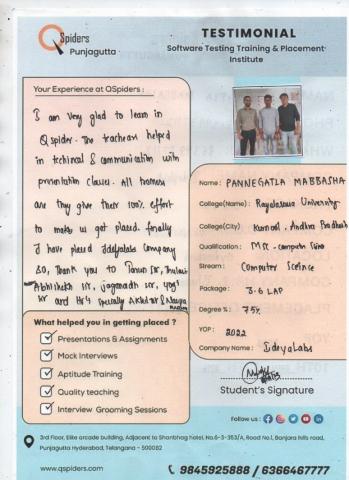 QSpiders
Punjagutta
TESTIMONIAL
Software Testing Training & Placement
Institute
Your Experience at QSpiders :
I am very glad to learn in
Qspider. The trachears helped
in techinical & communication with
presentation classes. All trainers
are they give their 100% effort
to make us get placed. finally
I have placed Ideyalabs company
So, Thank you to Tarun Sir, Thulasi
Abhisheka sir, jaganadh sir, yogi
sir and Hr's specially Akhil sir &
What helped you in getting placed ?
Presentations & Assignments
Mock Interviews
Aptitude Training
Quality teaching
Interview Grooming Sessions
Name : PANNEGATLA MABBASHA
College(Name) : Rayalaseema University
College(City) : Kurnool, Andhra Pradesh
Qualification : MSC - computer
Stream : Computer Science
Package : 3.6 LAP
Degree % : 75%
YOP : 2022
Company Name : IdeyaLabs
Student's Signature
Follow us :
3rd Floor, Elite arcade building, Adjacent to Shanbhag hotel, No.6-3-353/A, Road No.1, Banjara hills road,
Punjagutta Hyderabad, Telangana - 500082
www.qspiders.com
9845925888 / 6366467777